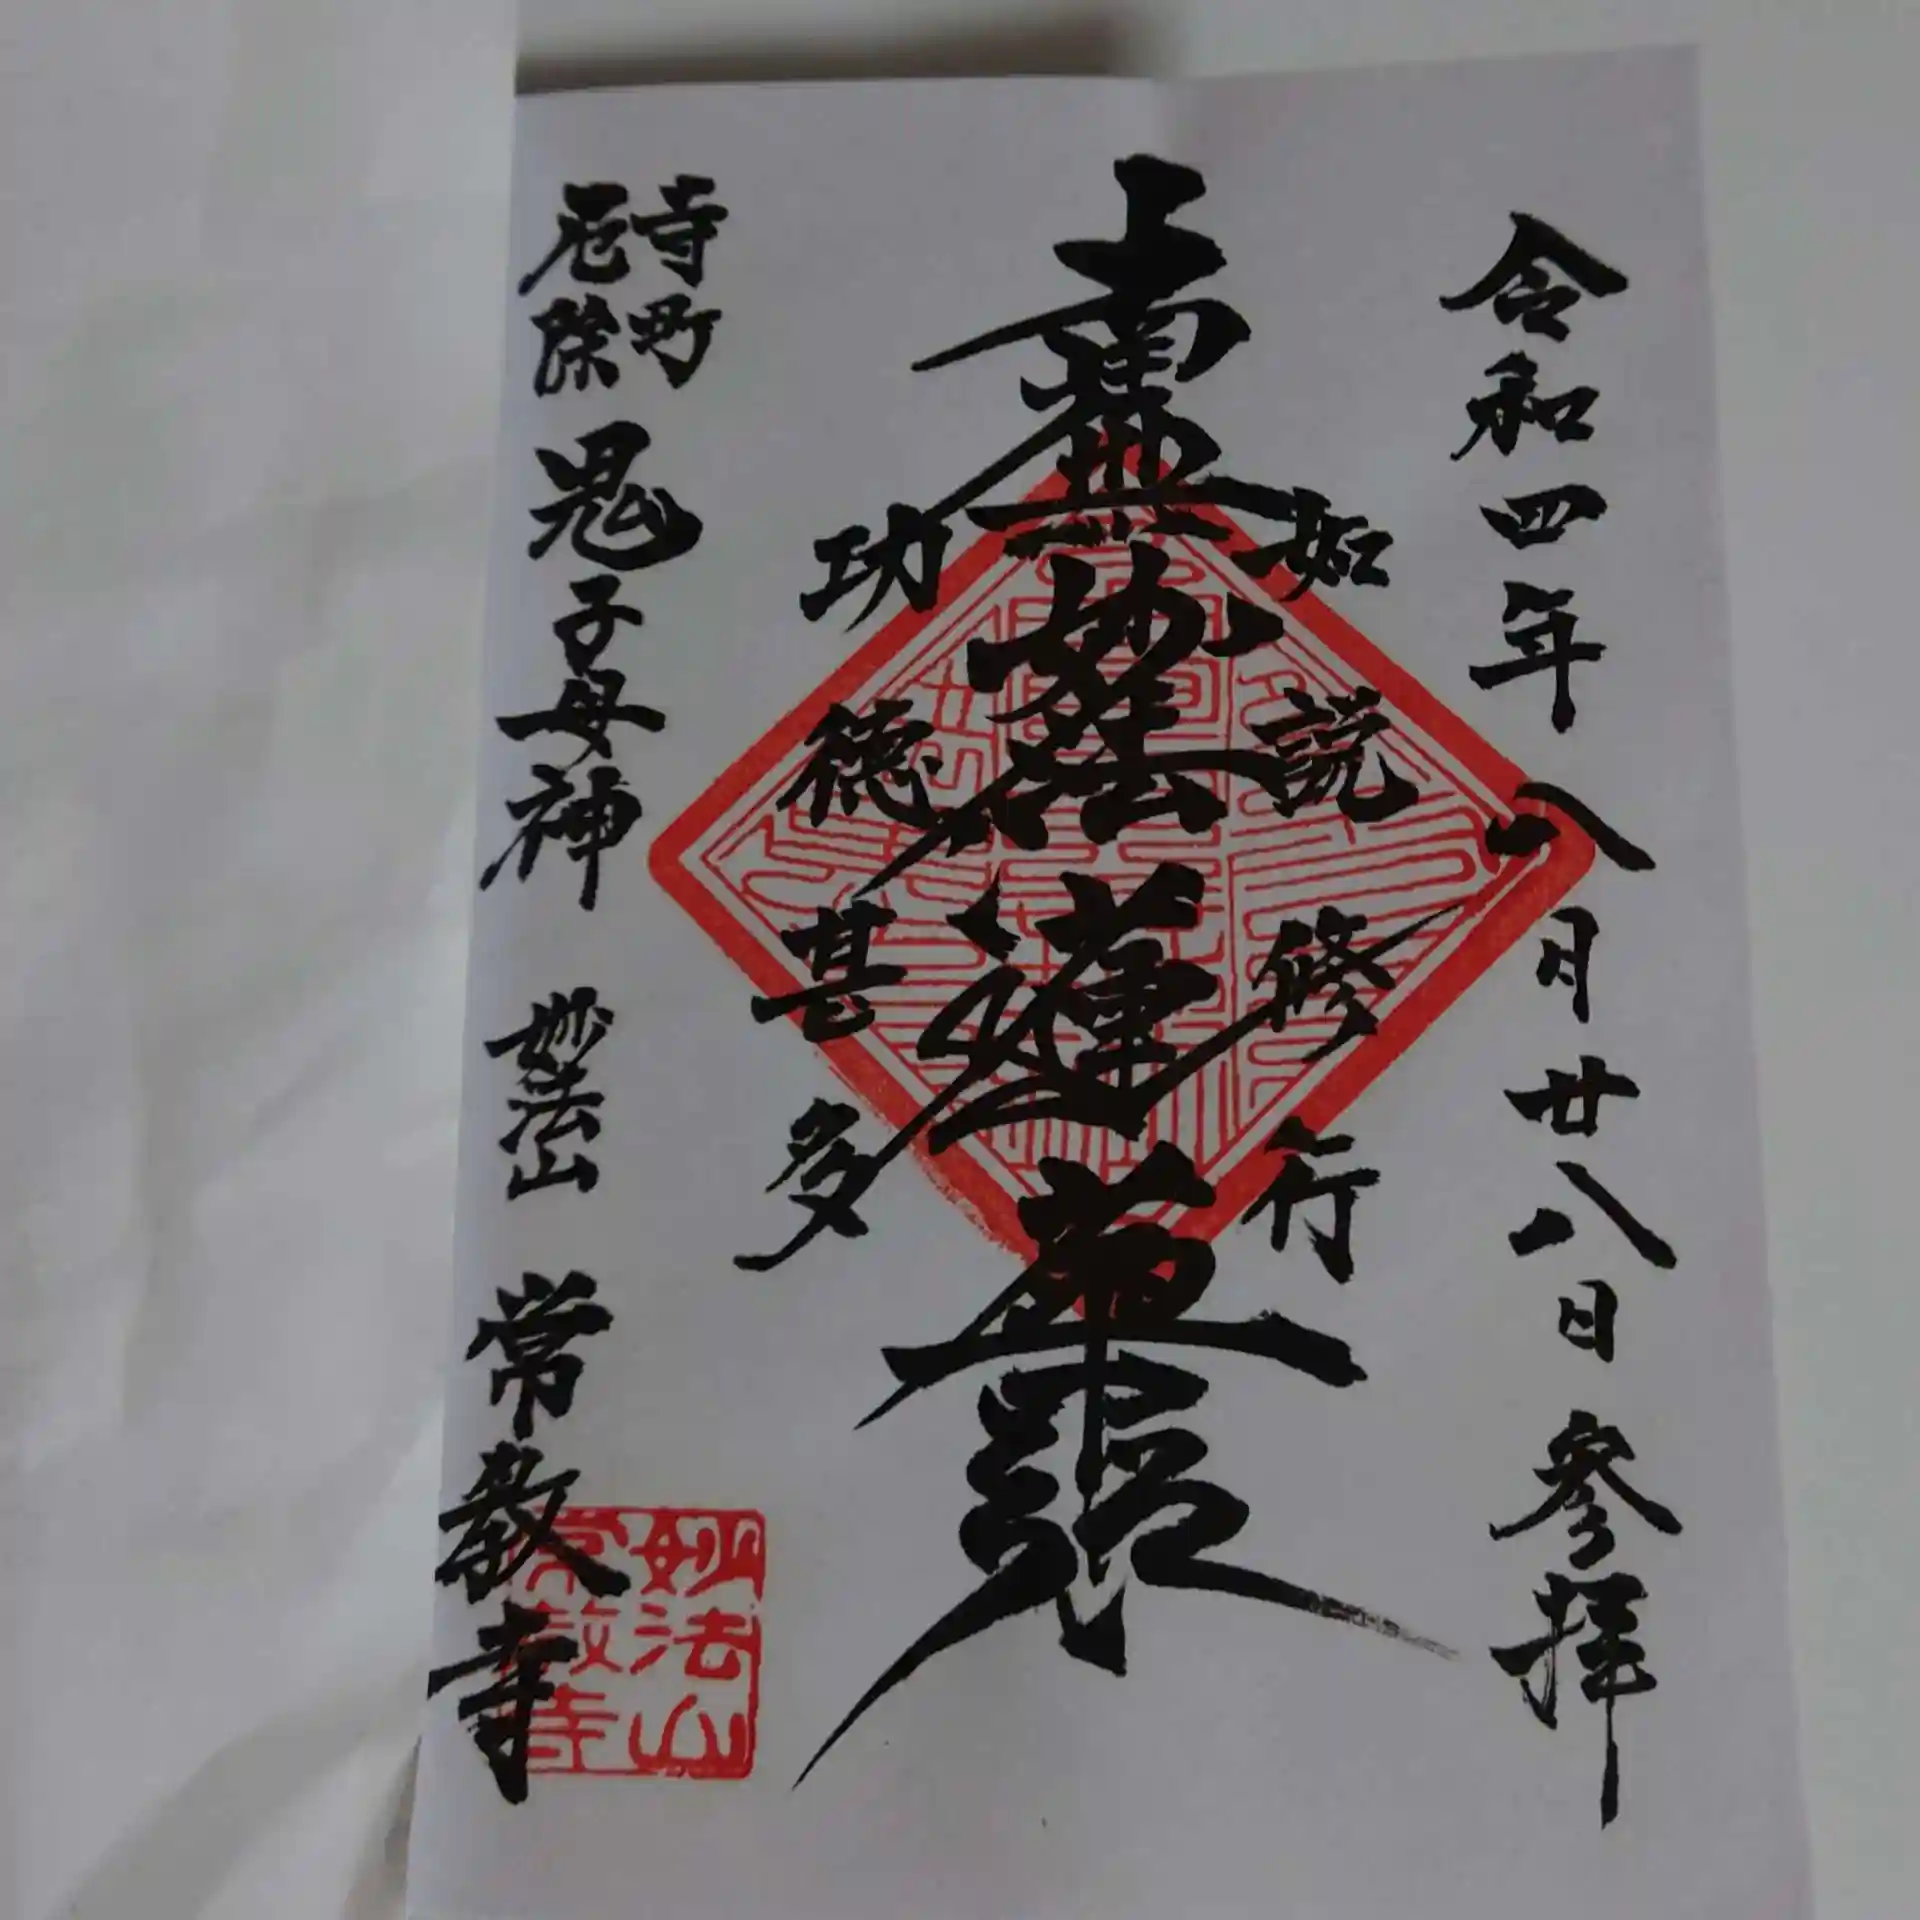 令和四年八月廿八日参拝
如説修行
南無妙法蓮華経
功徳甚多
寺町
厄除
鬼子母神 妙法山 常教寺
妙法山
常教寺